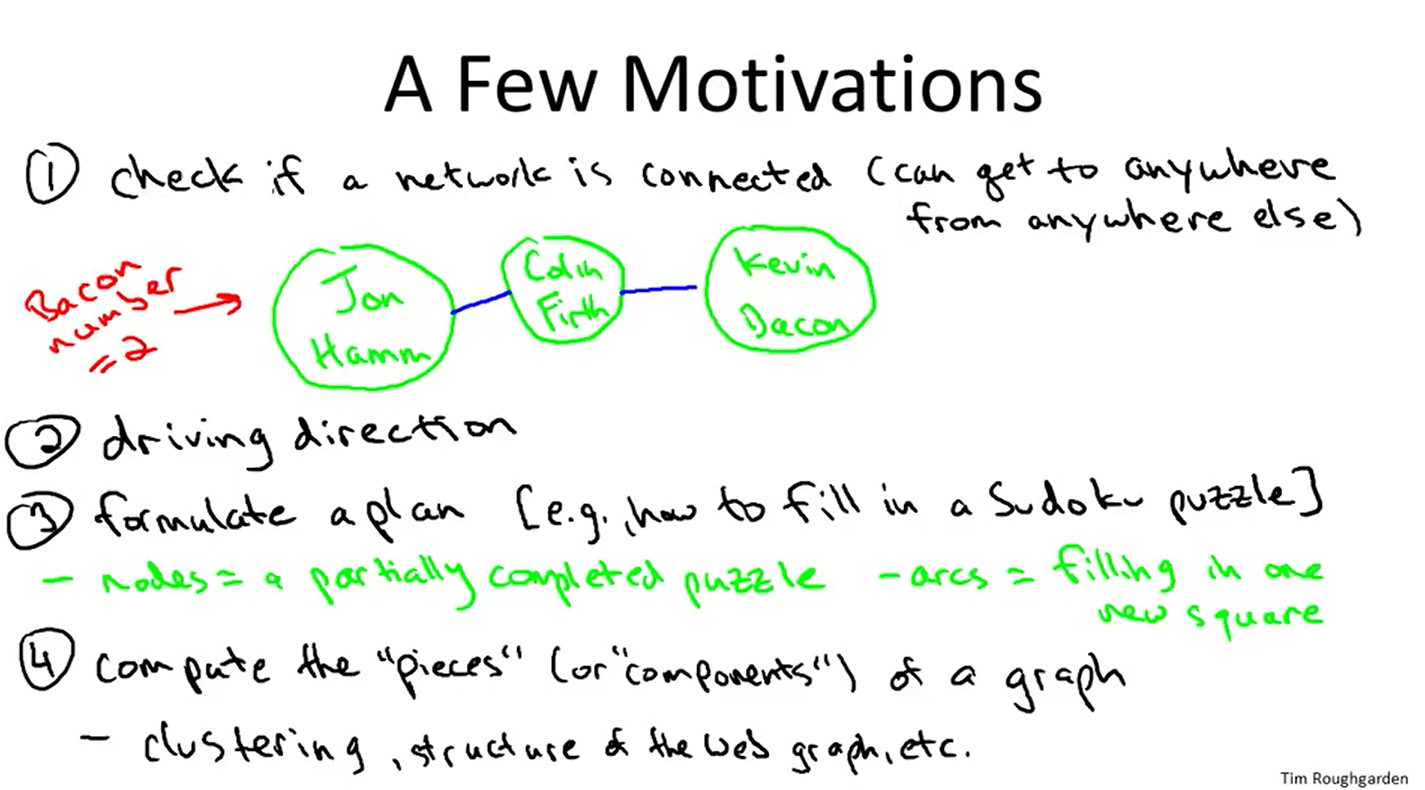 A Few Motivations
① check if a network is connected (can get to anywhere
from anywhere else)
Bacon
number
= 2
Jon
Hamm
Colin
Firth
Kevin
Bacon
② driving direction
③ formulate a plan [e.g., how to fill in a Sudoku puzzle]
- nodes = a partially completed puzzle - arcs = filling in one
new square
④ compute the "pieces" (or "components") of a graph
- clustering, structure of the Web graph, etc.
Tim Roughgarden